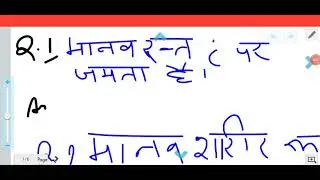 Q.1 मानव रक्त ८ पर
जमता है।
A
Q2 मानव शरीर